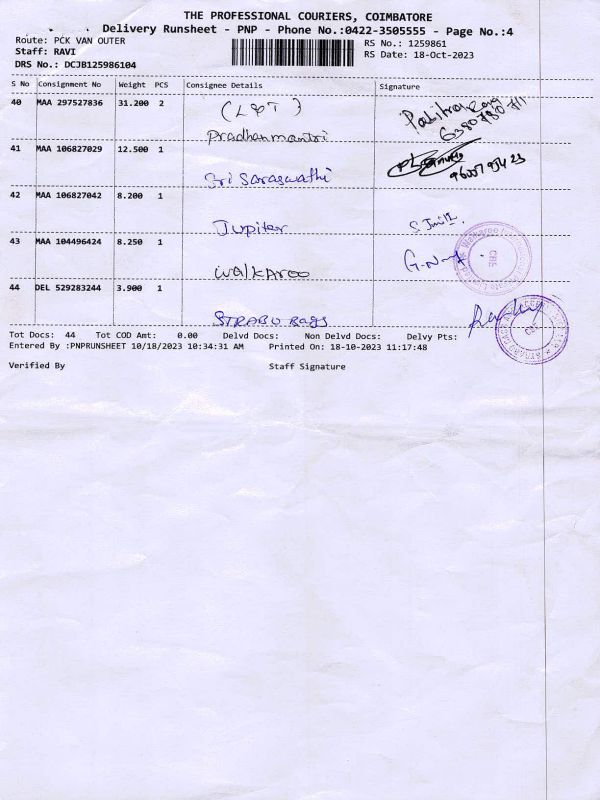 THE PROFESSIONAL COURIERS, COIMBATORE
Delivery Runsheet - PNP - Phone No.:0422-3505555 - Page No.:4
Route: PCK VAN OUTER
RS No.: 1259861
Staff: RAVI
RS Date: 18-Oct-2023
DRS No.: DCJB125986104
S No Consignment No Weight PCS Consignee Details Signature
40 MAA 297527836 31.200 2 (L&T)
Pradhanmantri
41 MAA 106827029 12.500 1
Sri Saraswathi
42 MAA 106827042 8.200 1
Jupiter
43 MAA 104496424 8.250 1
walkaroo
44 DEL 529283244 3.900 1
STRABO Bags
Tot Docs: 44 Tot COD Amt: 0.00 Delvd Docs: Non Delvd Docs: Delvy Pts:
Entered By :PNPRUNSHEET 10/18/2023 10:34:31 AM Printed On: 18-10-2023 11:17:48
Verified By Staff Signature